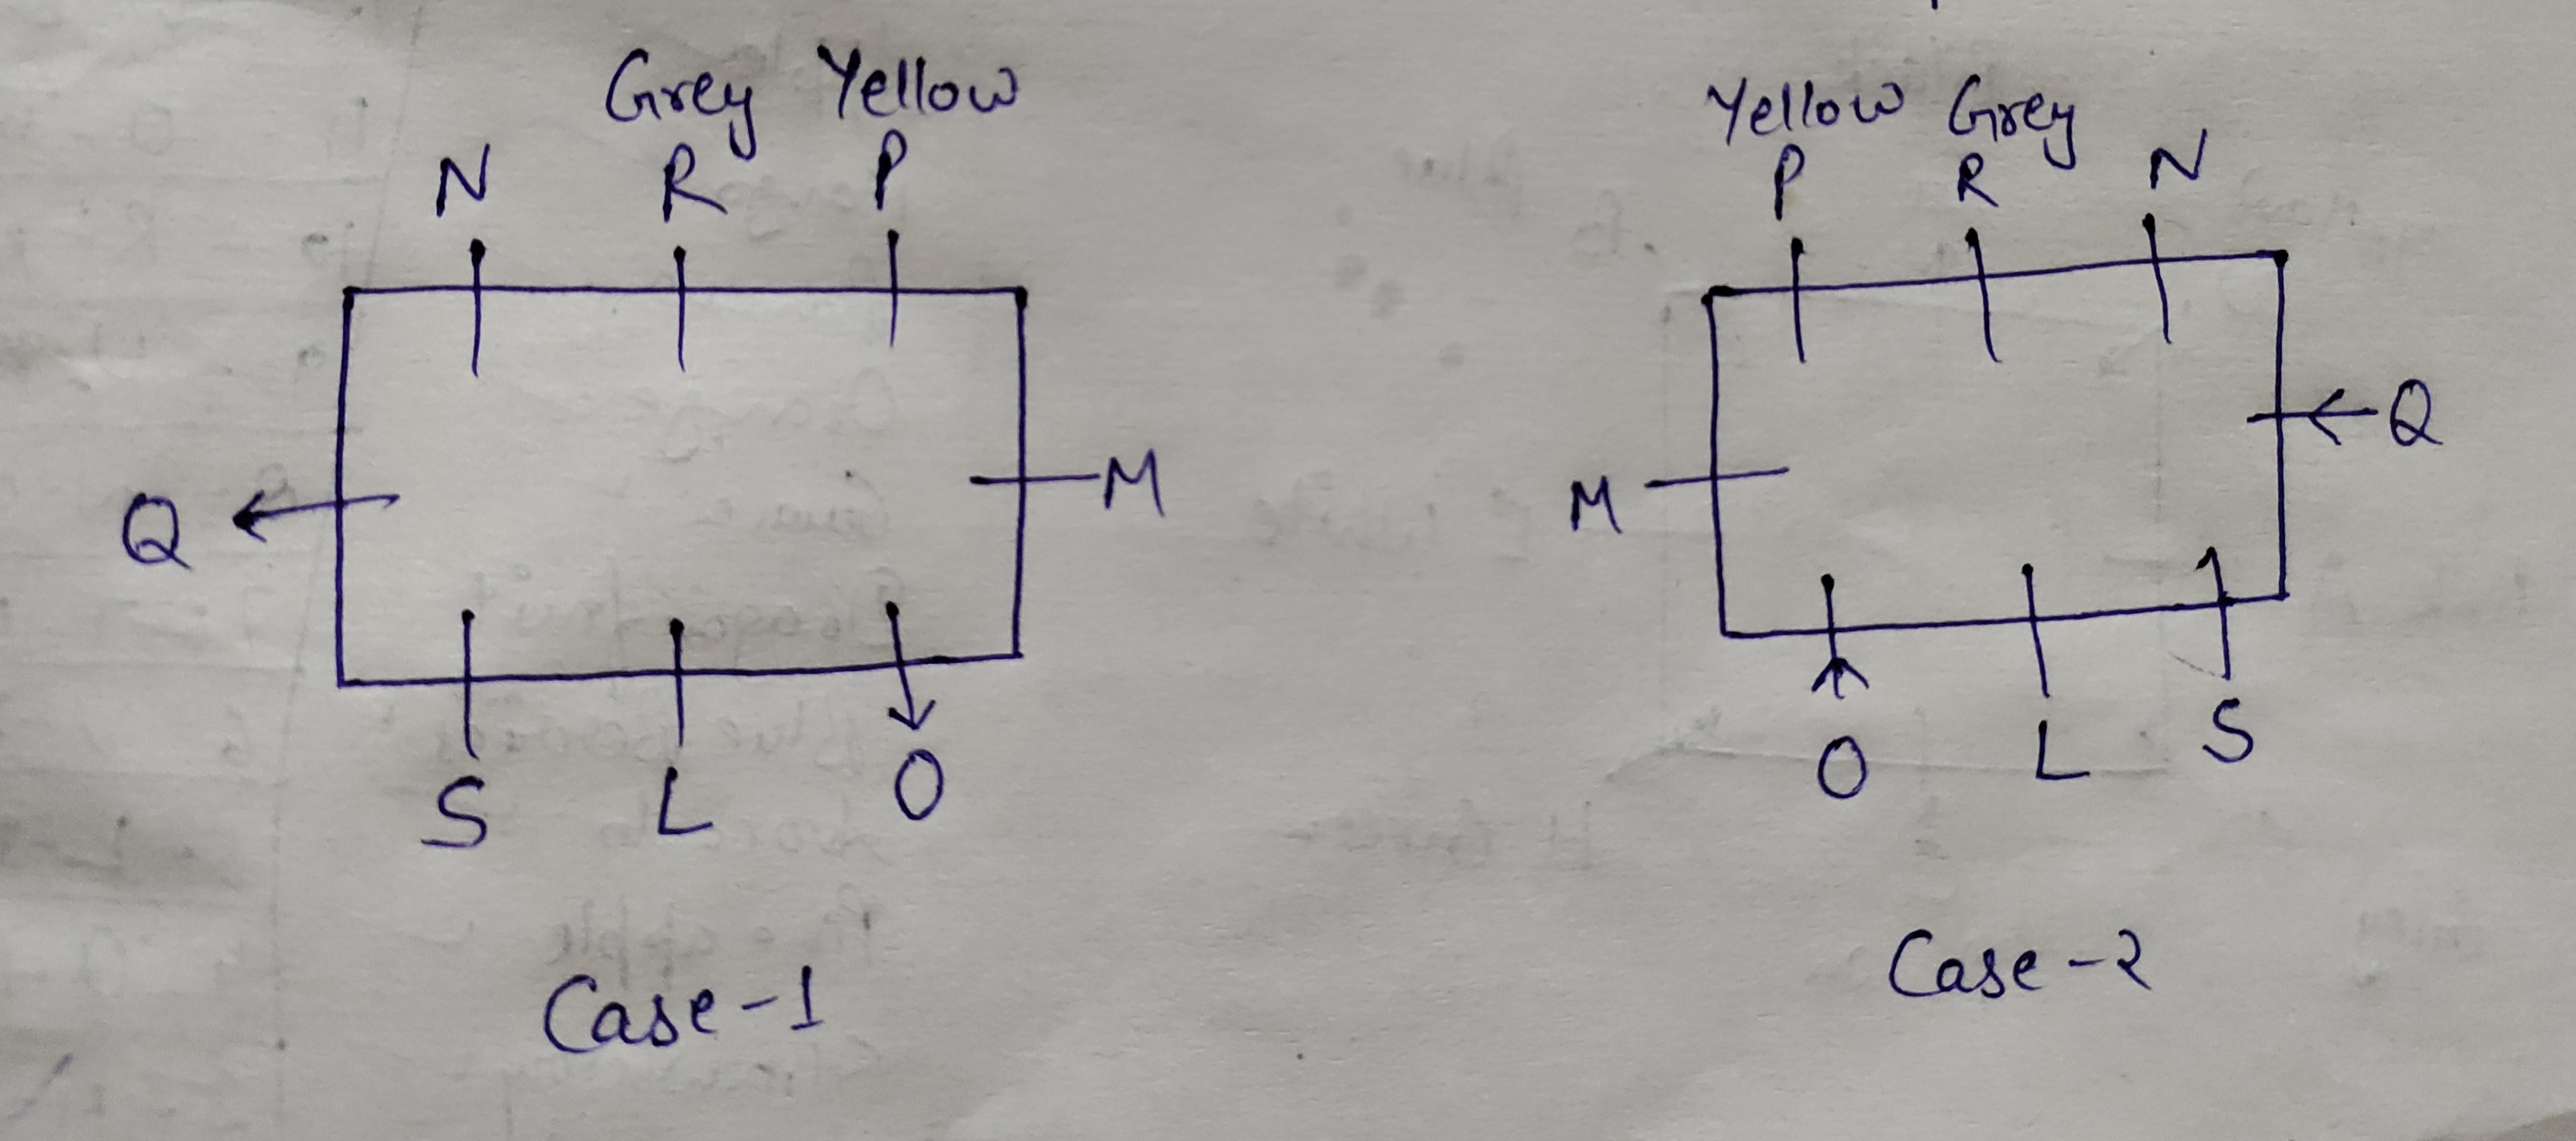 Grey Yellow
N R P
Q M
S L O
Case-1
Yellow Grey
P R N
M Q
O L S
Case-2